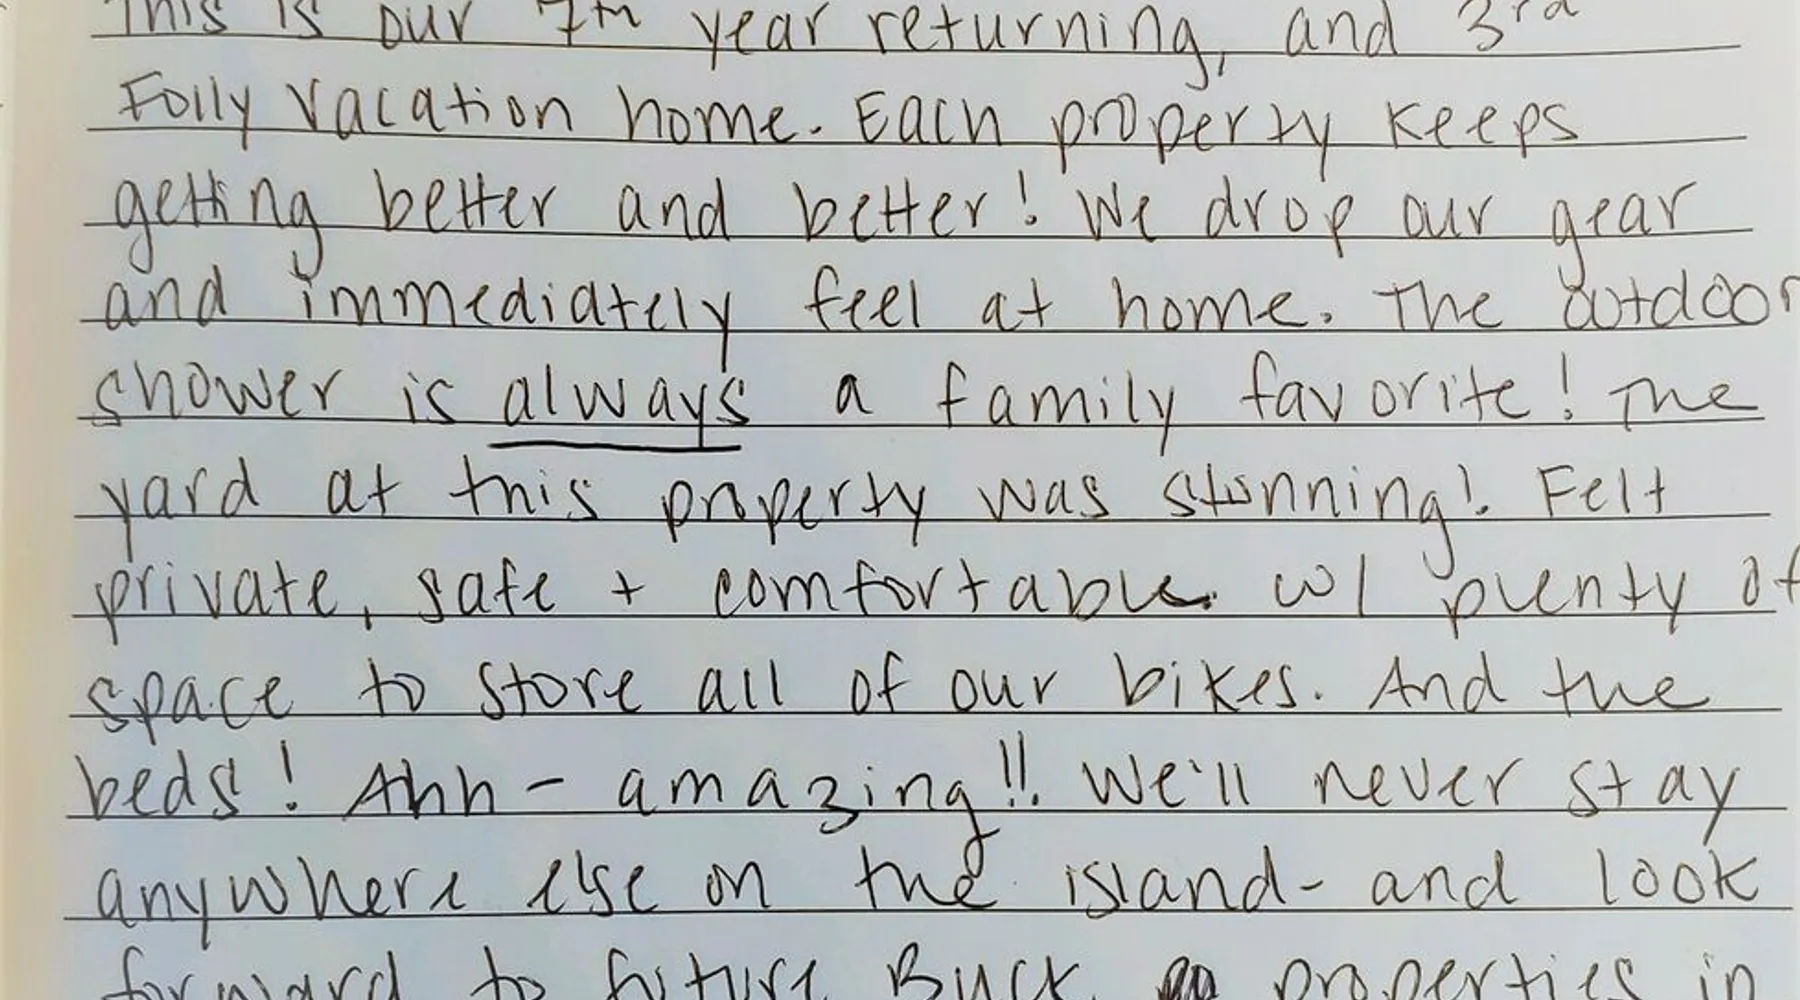 This is our 7th year returning, and 3rd
Folly Vacation home. Each property keeps
getting better and better! We drop our gear
and immediately feel at home. The outdoor
shower is always a family favorite! The
yard at this property was stunning! Felt
private, safe + comfortable. w/ plenty of
space to store all of our bikes. And the
beds! Ahh - amazing!! We'll never stay
anywhere else on the island - and look
forward to future Buck properties in